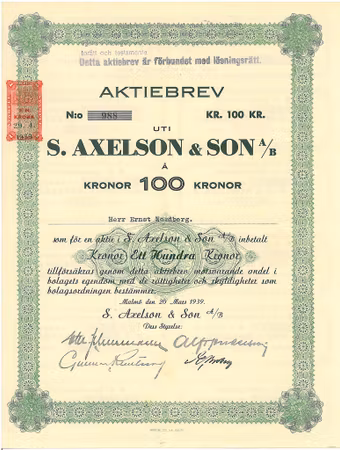 Detta aktiebrev är förbundet med lösningsrätt.
AKTIEBREV
N:o 988 KR. 100 KR.
UTI
S. AXELSON & SON A/B
À
KRONOR 100 KRONOR
Herr Ernst Nordborg.
som för en aktie i S. Axelson & Son A/B inbetalt
Kronor Ett Hundra Kronor
tillförsäkras genom detta aktiebrev motsvarande andel i
bolagets egendom med de rättigheter och skyldigheter som
bolagsordningen bestämmer.
Malmö den 20 Mars 1939.
S. Axelson & Son A/B
Dess Styrelse: